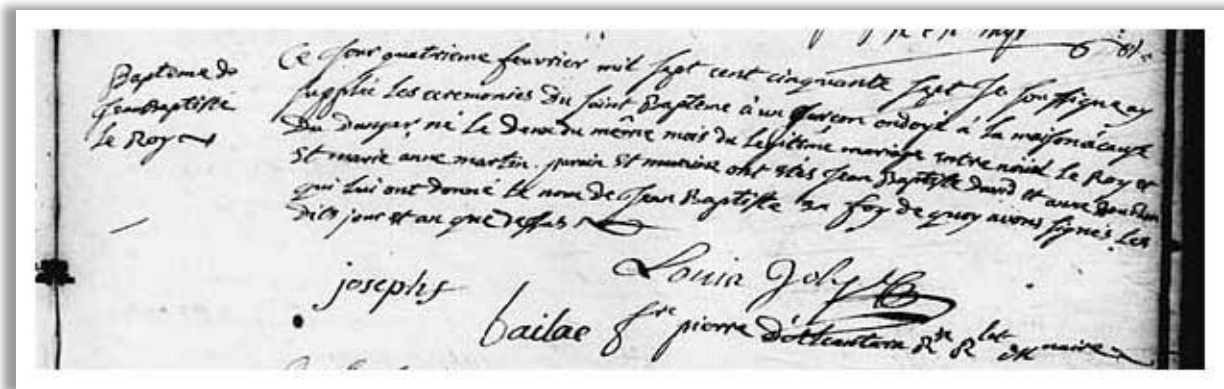 Baptême de
Jean Baptiste
le Roy
Ce jour quatrieme feuvrier mil sept cent cinquante sept Je soussigné ay
supplié les ceremonies du saint Baptême à un garcon ondoyé à la maison àcause
du danger né le deux du même mois du legitime mariage entre noiiel le Roy et
et marie anne martin. parain et maraine ont étés Jean Baptiste david et anne
qui lui ont donné le nom de Jean Baptiste en foy de quoy avons signés les
dits jour et an que dessus
Louis Joly
josephs
bailae f^re pierre